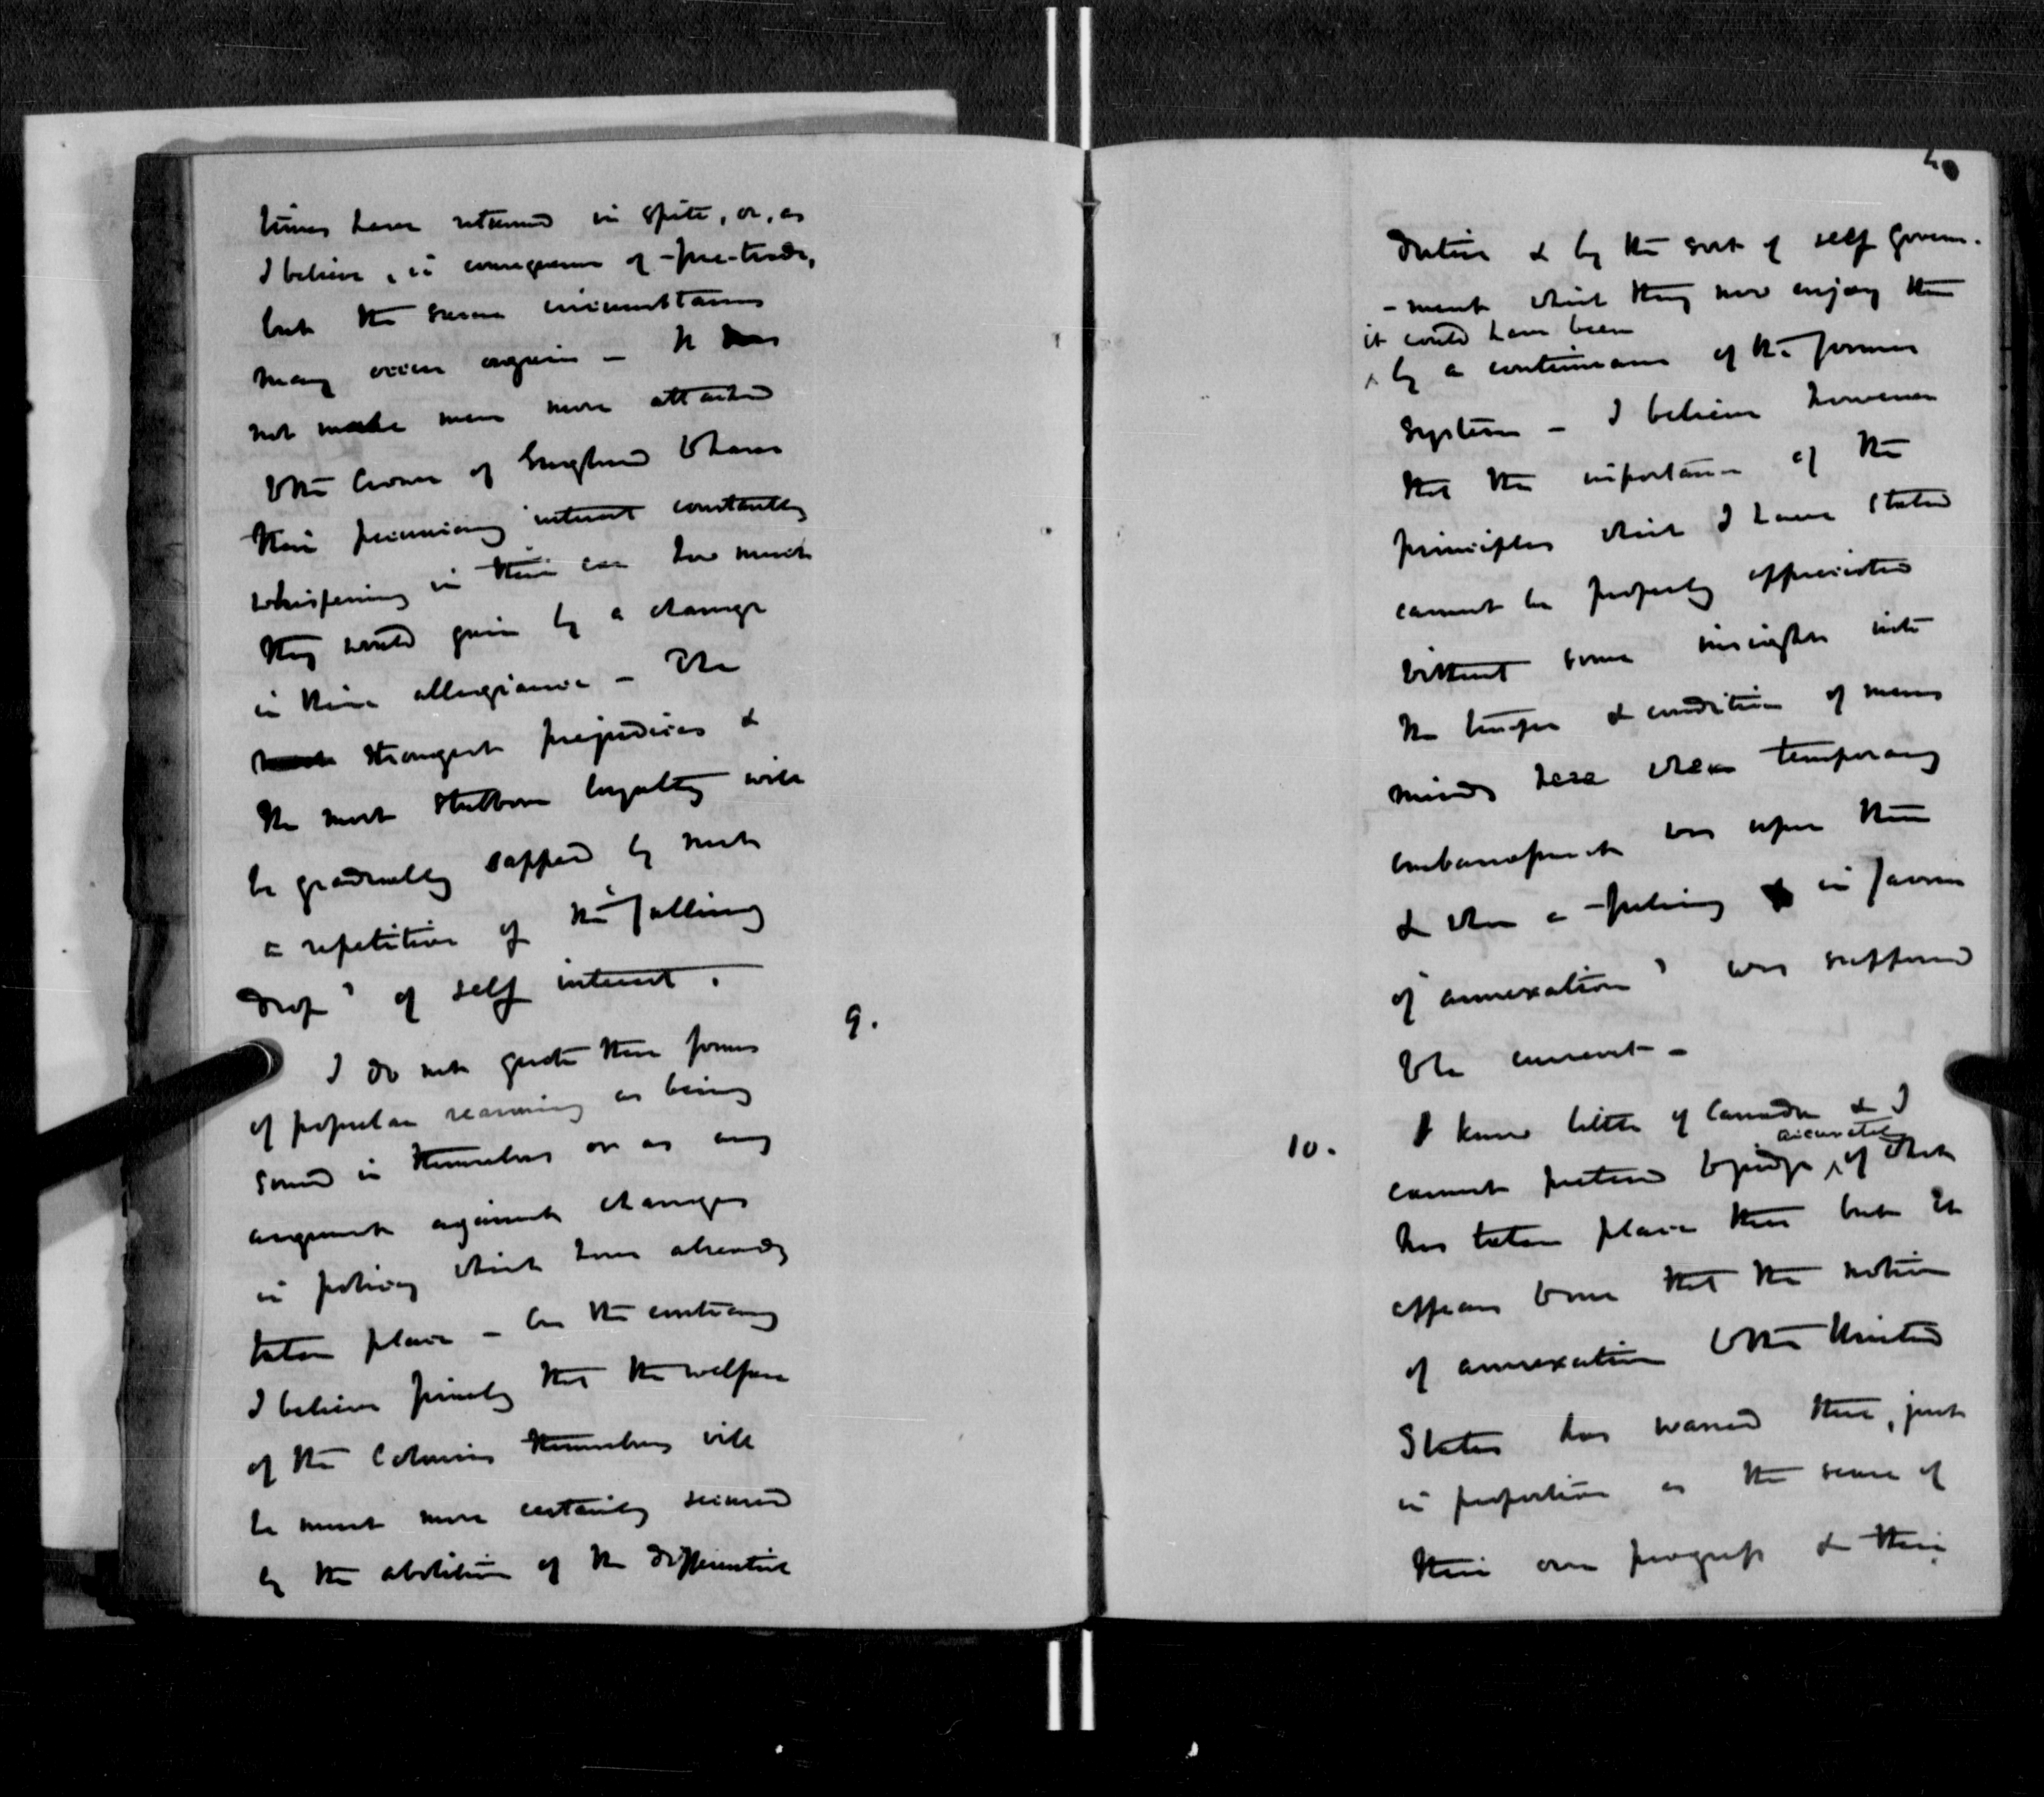 times have returned in spite, or, as
I believe, in consequence of free-trade,
but the same circumstances
may occur again - It does
not make men more attached
to the Crown of England to have
their pecuniary interest constantly
whispering in their ear how much
they would gain by a change
in their allegiance - The
strongest prejudices &
the most stubborn loyalty will
be gradually sapped by such
a repetition of the "falling
drop" of self interest.
9.
I do not quote these forms
of popular reasoning as being
sound in themselves or as any
argument against changes
in policy which have already
taken place - On the contrary
I believe firmly that the welfare
of the Colonies themselves will
be much more certainly secured
by the abolition of the differential
duties & by the sort of self govern-
-ment which they now enjoy than
it could have been
^ by a continuance of the former
system - I believe however
that the importance of the
principles which I have stated
cannot be properly appreciated
without some insight into
the temper & condition of mens
minds here when temporary
embarrassment was upon them
& when a feeling in favour
of "annexation" was suffered
to be current -
10.
I know little of Canada & I
accurately
cannot pretend to judge ^ of what
has taken place there but it
appears to me that the notion
of annexation to the United
States has waned there, just
in proportion as the sense of
their own progress & their